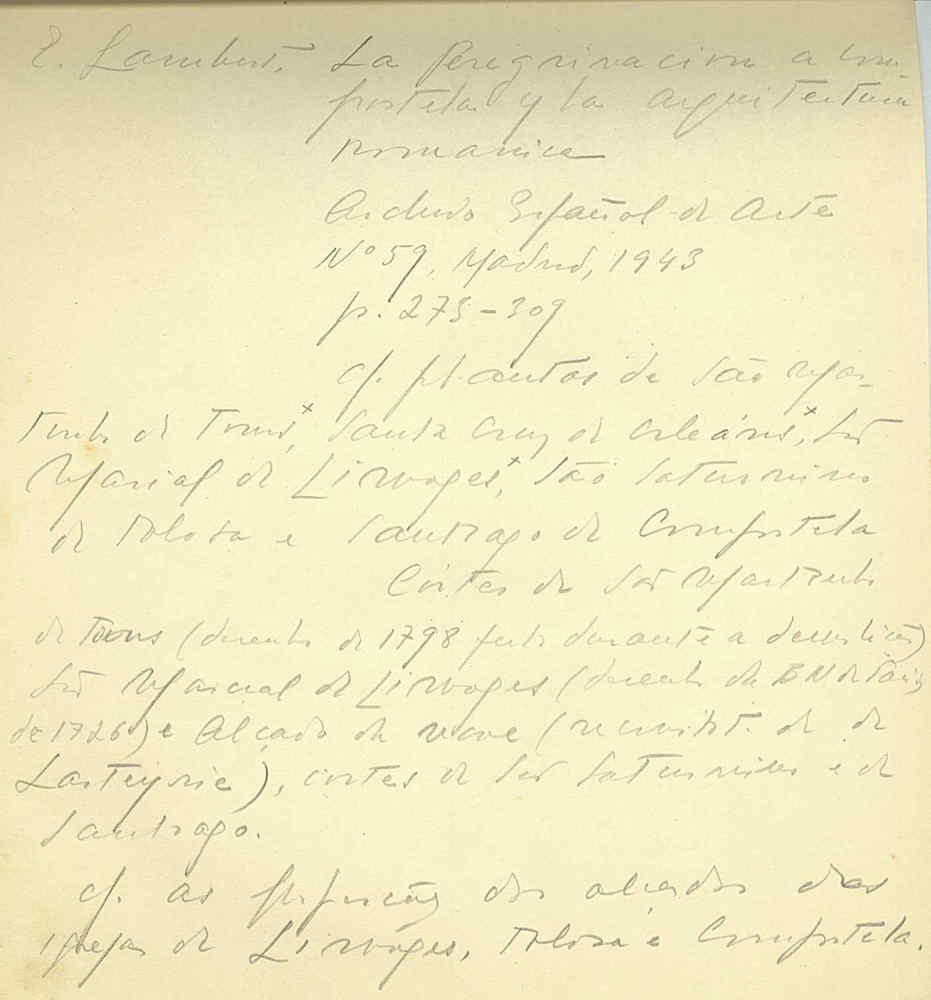 E. Lambert. La Peregrinacion a Com-
postela y la arquitectura
romanica
Archivo Español de Arte
Nº 59, Madrid, 1943
p. 273-309
cf. plantas de São Mar-
tinho de Tours x, Santa Cruz de Orleáns x, São
Marcial de Limoges x, São Saturnino
de Tolosa e Santiago de Compostela
Cortes de São Martinho
de Tours (desenho de 1798 feito durante a demolição)
São Marcial de Limoges (desenho da BN de Paris
de 1726) e Alçado da nave (reconstit. de de
Lasteyrie), cortes de São Saturnino e de
Santiago.
cf. as dos alçados das
igrejas de Limoges, Tolosa e Compostela.